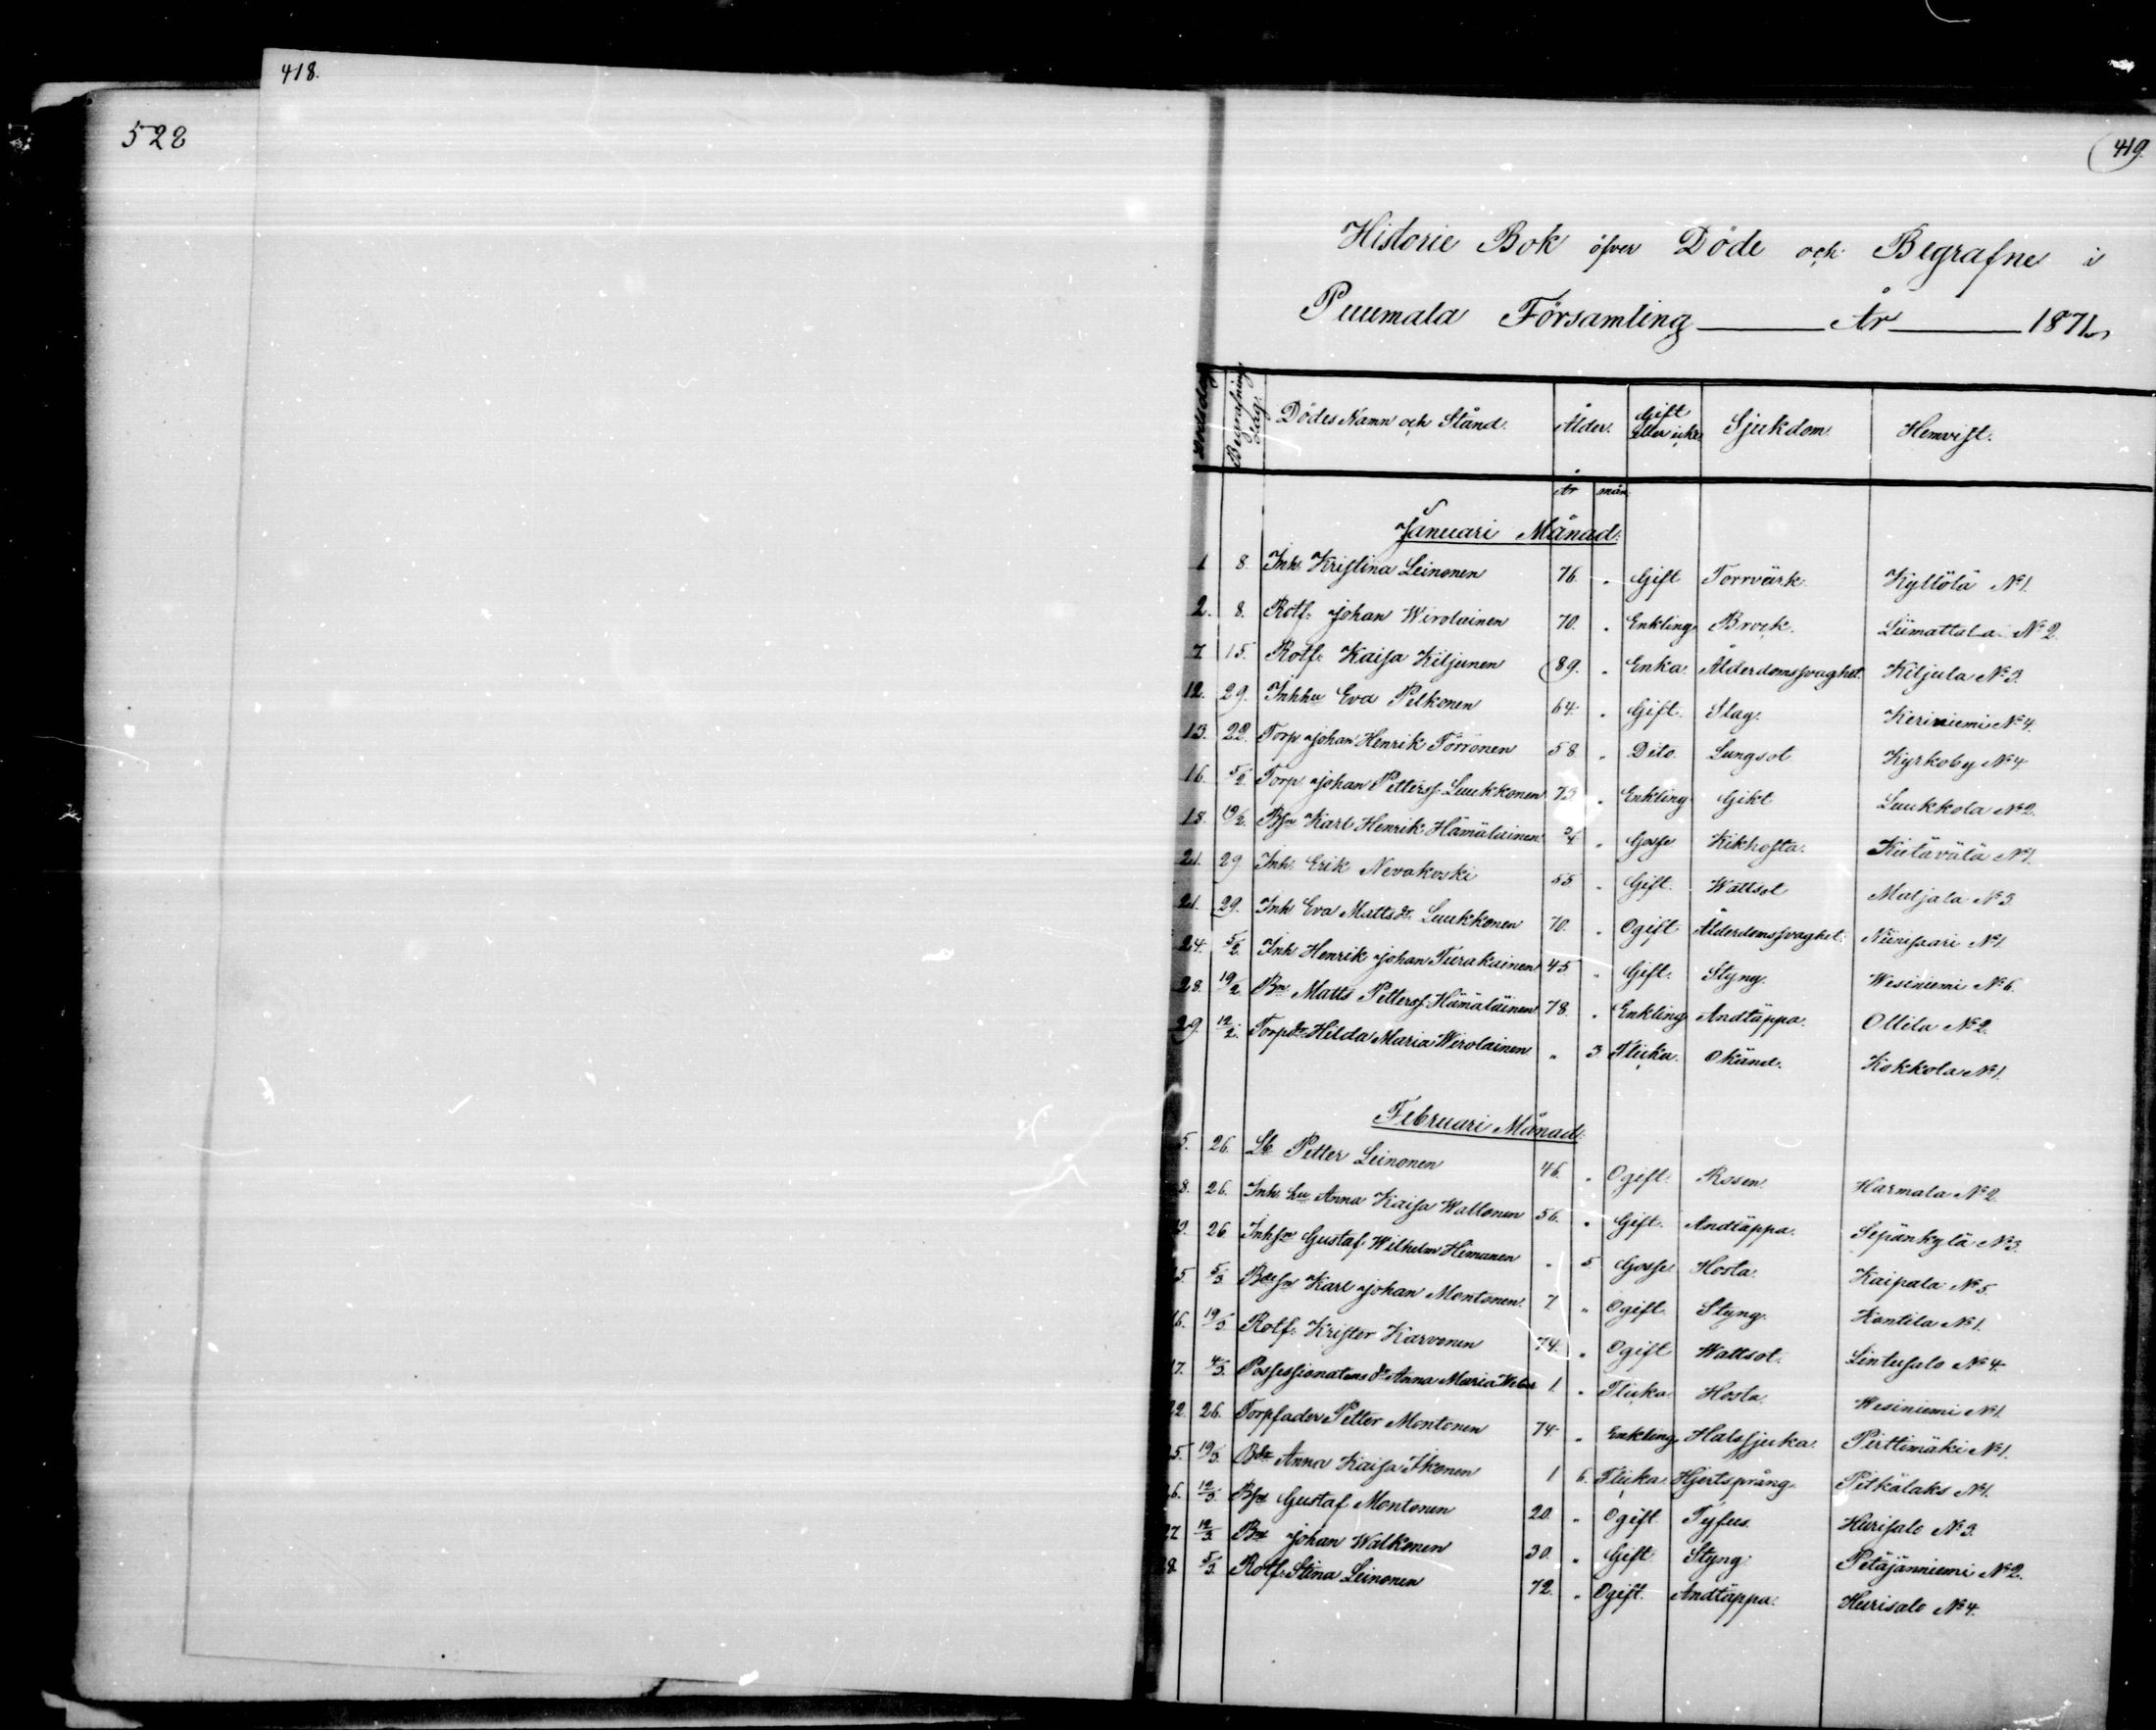 418.
528
419.
Historie Bok öfver Döde och Begrafne i
Puumala Församling År 1871
Begrafnings dag. Dödes Namn och Stånd. Ålder. Gift eller icke. Sjukdom. Hemvist.
År mån
Januari Månad.
1 8. Inh. Kristina Leinonen 76. " Gift Torrvärk Kyllölä No 1.
2. 8. Rotf. Johan Wirolainen 70. " Enkling Brock. Liimattala No 2.
7 15. Rotf. Kaisa Kiljunen 89. " Enka. Ålderdomssvaghet. Kiljula No 3.
12. 29. Inhhu Eva Pelkonen 64. " Gift. Slag. Keriniemi No 4.
13. 22. Torp Johan Henrik Törrönen 58 " Dito. Lungsot Kyrkoby No 4
16. 5/2. Torp Johan Petterss. Luukkonen 73 " Enkling Gikt Luukkola No 2.
18. /2. Bsn Karl Henrik Hämäläinen 3/4 " Gosse Kikhosta. Kiitävälä No 1.
21. 29. Inh. Erik Nevakoski 55 " Gift. Wattsot Maljala No 3
21. 29. Inh Eva Mattsdr. Luukkonen 70. " Ogift Ålderdomssvaghet. Niinisaari No 1.
24. 5/2. Inh Henrik Johan Turakainen 45 " Gift. Styng. Wesiniemi No 6.
28. 19/2. Bn Matts Petterss. Hämäläinen 78. " Enkling Andtäppa. Ollila No 2.
29. 12/2. Torpdr. Hilda Maria Wirolainen " 3 Flicka. Okänd. Kokkola No 1.
Februari Månad.
5. 26. Petter Leinonen 46. " Ogift. Rosen. Harmala No 2.
8. 26. Inh. hu Anna Kaisa Waltonen 56. " Gift. Andtäppa. Sepänkylä No 3.
26 Inhsn Gustaf Wilhelm Himanen " 5 Gosse Hosta. Kaipala No 5.
5. 5/3. Karl Johan Montonen 7 " Ogift. Styng. Kontila No 1.
6. 19/3. Rotf. Krister Karvonen 74. " Ogift Wattsot. Lintusalo No 4.
7. /3. Possessionatens dr Anna Maria 1. " Flicka Hosta. Wesiniemi No 1.
22. 26. Torpfader Petter Montonen 74. " Enkling Halssjuka. Pirttimäki No 1.
5. 19/3. Bdr Anna Kaisa Ikonen 1 6. Flicka Hjertsprång. Pitkälaks No 1.
6. 12/3. Bsn Gustaf Montonen 20. " Ogift Tyfus. Hurisalo No 3.
27 12/3. Bn Johan Walkonen 30. " Gift Styng. Petäjänniemi No 2.
8 5/3. Rotf. Stina Leinonen 72. " Ogift. Andtäppa. Hurisalo No 4.